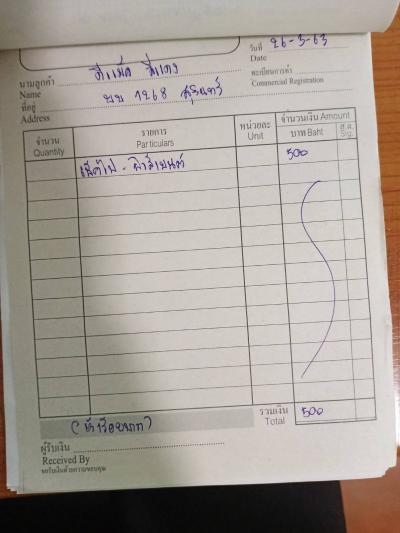 วันที่ 26-3-63
Date
นามลูกค้า ดีแม็ค สีแดง
Name
ทะเบียนการค้า
Commercial Registration
ที่อยู่ บบ 1268 สุรินทร์
Address
จำนวน รายการ หน่วยละ จำนวนเงิน Amount
Quantity Particulars Unit บาท Baht ส.ต. Stg.
เช็คไฟ - 500
รวมเงิน 500
Total
(ห้าร้อยบาท)
ผู้รับเงิน
Received By
ขอรับเงินด้วยความขอบคุณ